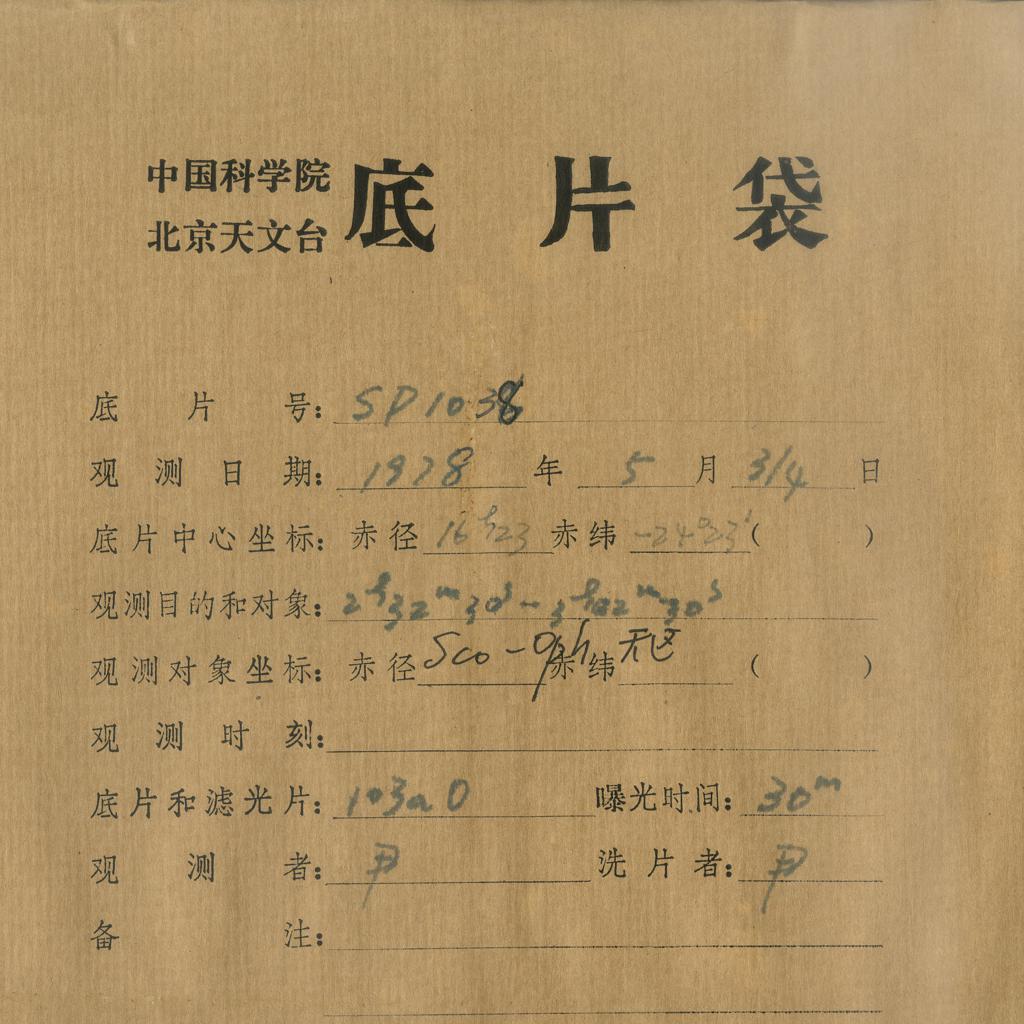 中国科学院
北京天文台
底片袋
底片号：SP1038
观测日期：1978年5月3/4日
底片中心坐标：赤径16ʰ23赤纬-24°23′（ ）
观测目的和对象：2ʰ32ᵐ30ˢ-3ʰ02ᵐ30ˢ
观测对象坐标：赤径Sco-Oph赤纬天区（ ）
观测时刻：
底片和滤光片：103aO 曝光时间：30ᵐ
观测者：尹 洗片者：尹
备注：